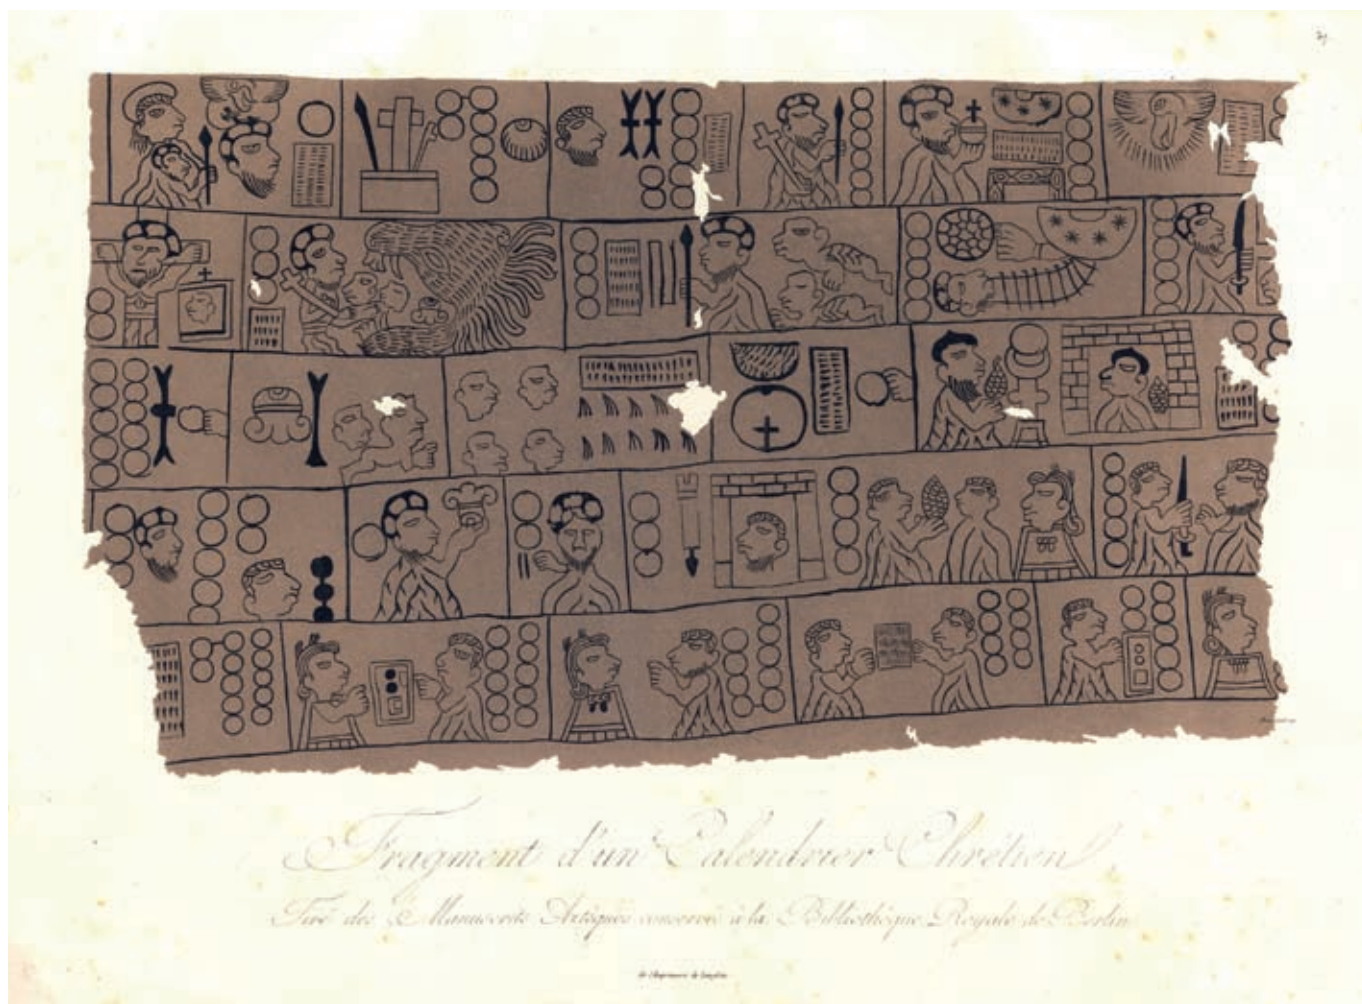 Fragment d'un Calendrier Chrétien
Tiré des Manuscrits Aztèques conservés à la Bibliothèque Royale de Berlin
de l'Imprimerie de Langlois